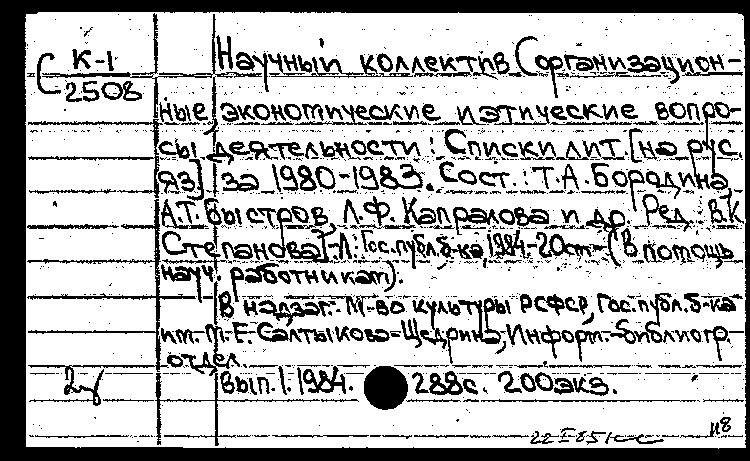 С К-1
2508
Научный коллектив (организацион-
ные, экономические и этические вопро-
сы деятельности: Списки лит. [на рус.
яз.] за 1980-1983. Сост.: Т.А. Бородина,
А.Т. Быстров, Л.Ф. Капралова и др. Ред.: В.К.
Степанова].-Л.: Гос. публ. б-ка, 1984.-20см.-(В помощь
науч. работникам).
В надзаг.: М-во культуры РСФСР, Гос. публ. б-ка
им. М.Е. Салтыкова-Щедрина, Информ.-библиогр.
отдел.
Вып. 1. 1984. 288с. 200экз.
22 I 85
118